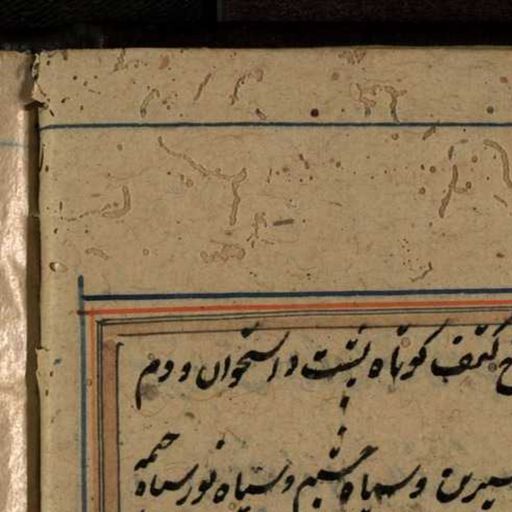 کتف کوتاه پشت و استخوان و دم
و سیاه چشم و سیاه نور سیاه خمه